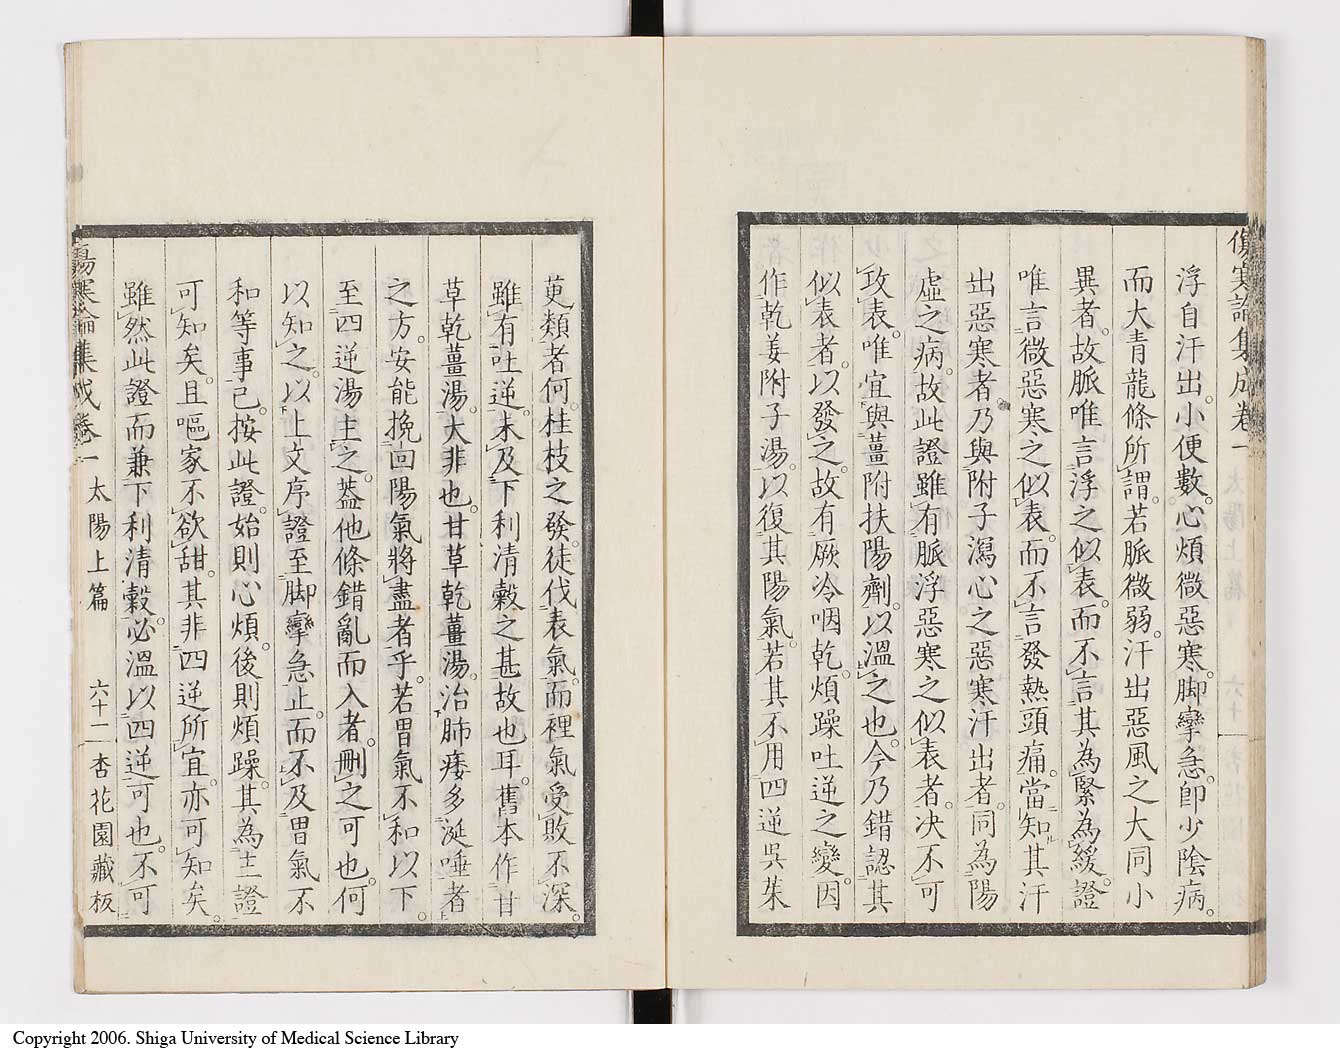 傷寒論集成卷一
浮自汗出。小便數。心煩微惡寒。脚攣急。卽少陰病。
而大青龍條所謂。若脈微弱。汗出惡風之大同小
異者。故脈唯言浮之似表。而不言其為緊為緩。證
唯言微惡寒之似表。而不言發熱頭痛。當知其汗
出惡寒者。乃與附子瀉心之惡寒汗出者。同為陽
虛之病。故此證雖有脈浮惡寒之似表者。决不可
攻表。唯宜與薑附扶陽劑。以溫之也。今乃錯認其
似表者。以發之。故有厥冷咽乾。煩躁吐逆之變。因
作乾姜附子湯。以復其陽氣。若其不用四逆吳茱
萸類者何。桂枝之發。徒伐表氣。而裡氣受敗不深。
雖有吐逆。未及下利清穀之甚故也耳。舊本作甘
草乾薑湯。大非也。甘草乾薑湯。治肺痿多涎唾者
之方。安能挽回陽氣將盡者乎。若胃氣不和以下。
至四逆湯主之。葢他條錯亂而入者。刪之可也。何
以知之。以上文序證至脚攣急止。而不及胃氣不
和等事已。按此證。始則心煩。後則煩躁。其為主證
可知矣。且嘔家不欲甜。其非四逆所宜。亦可知矣。
雖然此證而兼下利清穀。必溫以四逆可也。不可
傷寒論集成卷一 太陽上篇 六十二 杏花園藏板
Copyright 2006. Shiga University of Medical Science Library